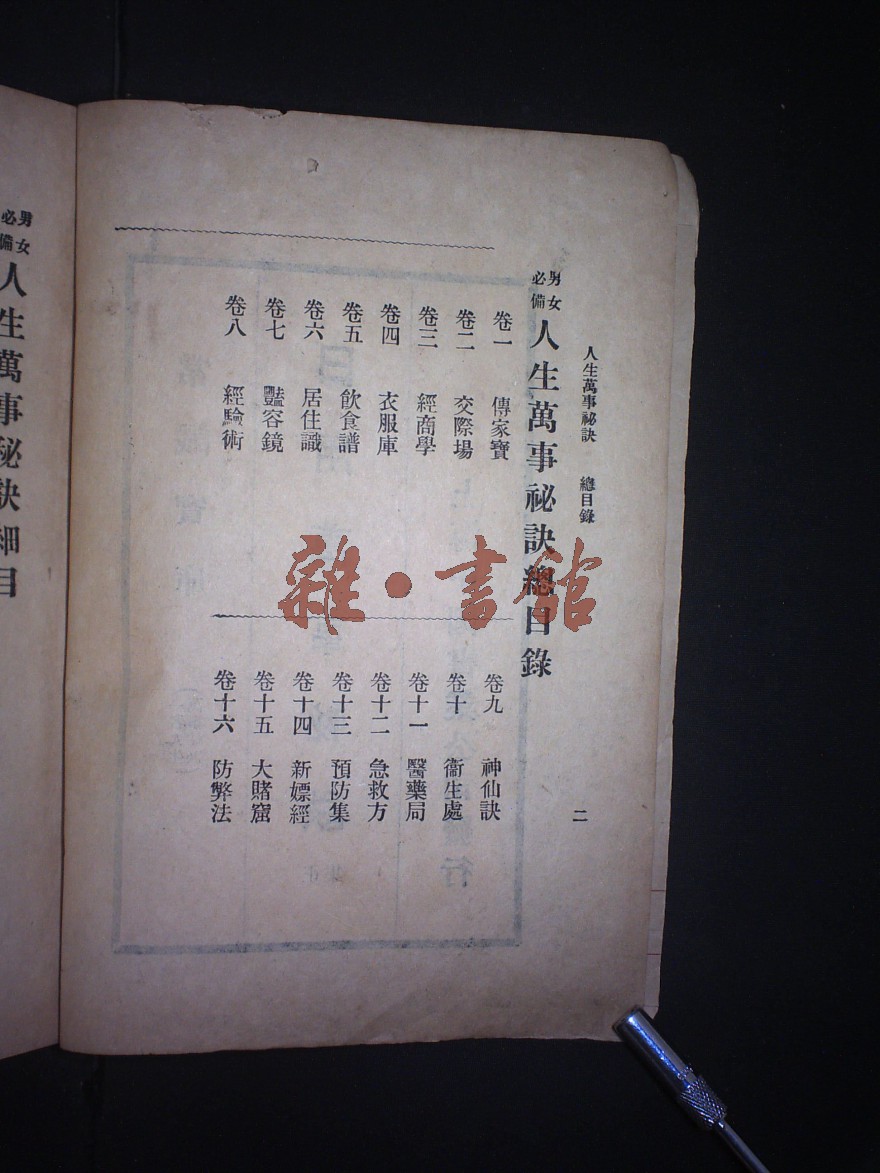 人生萬事祕訣　總目錄
二
男女必備
人生萬事祕訣總目錄
卷一　傳家寶
卷二　交際場
卷三　經商學
卷四　衣服庫
卷五　飲食譜
卷六　居住識
卷七　豔容鏡
卷八　經驗術
卷九　神仙訣
卷十　衞生處
卷十一　醫藥局
卷十二　急救方
卷十三　預防集
卷十四　新嫖經
卷十五　大賭窟
卷十六　防弊法
男女必備
人生萬事秘訣細目
雜·書館